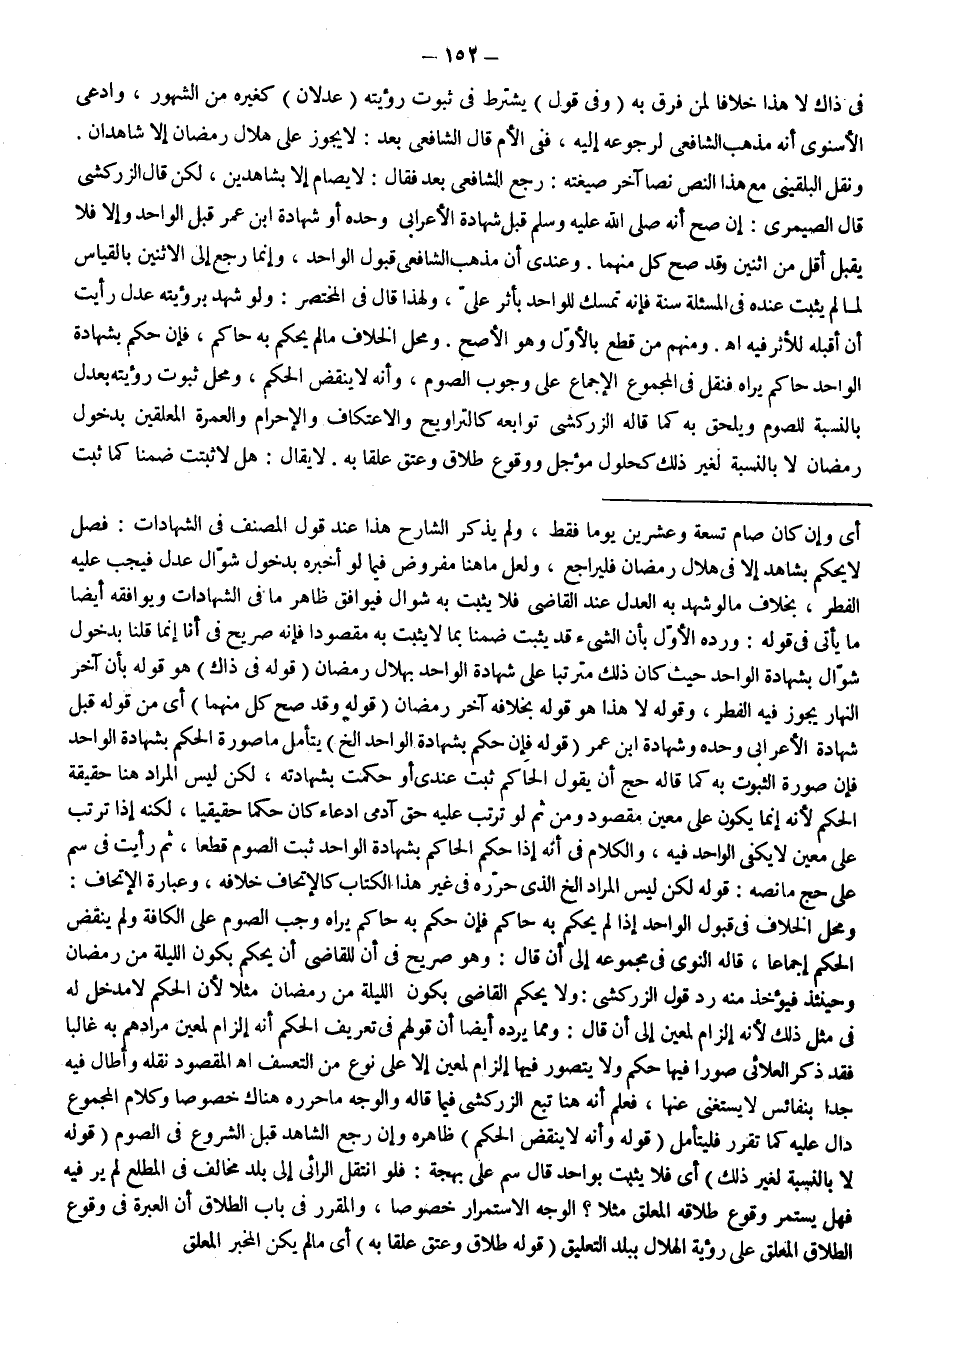 – ١٥٢ –
فى ذاك لا هذا خلافا لمن فرق به ( وفى قول ) يشترط فى ثبوت رؤيته ( عدلان ) كغيره من الشهور ، وادعى
الأسنوى أنه مذهب الشافعى لرجوعه إليه ، ففى الأم قال الشافعى بعد : لايجوز على هلال رمضان إلا شاهدان .
ونقل البلقينى مع هذا النص نصا آخر صيغته : رجع الشافعى بعد فقال : لايصام إلا بشاهدين ، لكن قال الزركشى
قال الصيمرى : إن صح أنه صلى الله عليه وسلم قبل شهادة الأعرابى وحده أو شهادة ابن عمر قبل الواحد وإلا فلا
يقبل أقل من اثنين وقد صح كل منهما . وعندى أن مذهب الشافعى قبول الواحد ، وإنما رجع إلى الاثنين بالقياس
لما لم يثبت عنده فى المسئلة سنة فإنه تمسك للواحد بأثر علىّ ، ولهذا قال فى المختصر : ولو شهد برؤيته عدل رأيت
أن أقبله للأثر فيه اه . ومنهم من قطع بالأوّل وهو الأصح . ومحل الخلاف مالم يحكم به حاكم ، فإن حكم بشهادة
الواحد حاكم يراه فنقل فى المجموع الإجماع على وجوب الصوم ، وأنه لاينقض الحكم ، ومحل ثبوت رؤيته بعدل
بالنسبة للصوم ويلحق به كما قاله الزركشى توابعه كالتراويح والاعتكاف والإحرام والعمرة المعلقين بدخول
رمضان لا بالنسبة لغير ذلك كحلول مؤجل ووقوع طلاق وعتق علقا به . لايقال : هل لاثبتت ضمنا كما ثبت
أى وإن كان صام تسعة وعشرين يوما فقط ، ولم يذكر الشارح هذا عند قول المصنف فى الشهادات : فصل
لايحكم بشاهد إلا فى هلال رمضان فليراجع ، ولعل ماهنا مفروض فيما لو أخبره بدخول شوّال عدل فيجب عليه
الفطر ، بخلاف مالو شهد به العدل عند القاضى فلا يثبت به شوال فيوافق ظاهر ما فى الشهادات ويوافقه أيضا
ما يأتى فى قوله : ورده الأوّل بأن الشىء قد يثبت ضمنا بما لايثبت به مقصودا فإنه صريح فى أنا إنما قلنا بدخول
شوّال بشهادة الواحد حيث كان ذلك مترتبا على شهادة الواحد بهلال رمضان ( قوله فى ذاك ) هو قوله بأن آخر
النهار يجوز فيه الفطر ، وقوله لا هذا هو قوله بخلافه آخر رمضان ( قوله وقد صح كل منهما ) أى من قوله قبل
شهادة الأعرابى وحده وشهادة ابن عمر ( قوله فإن حكم بشهادة الواحد الخ ) يتأمل ماصورة الحكم بشهادة الواحد
فإن صورة الثبوت به كما قاله حج أن يقول الحاكم ثبت عندى أو حكمت بشهادته ، لكن ليس المراد هنا حقيقة
الحكم لأنه إنما يكون على معين مقصود ومن ثم لو ترتب عليه حق آدمى ادعاء كان حكما حقيقيا ، لكنه إذا ترتب
على معين لايكفى الواحد فيه ، والكلام فى أنه إذا حكم الحاكم بشهادة الواحد ثبت الصوم قطعا ، ثم رأيت فى سم
على حج مانصه : قوله لكن ليس المراد الخ الذى حرّره فى غير هذا الكتاب كالإتحاف خلافه ، وعبارة الإتحاف :
ومحل الخلاف فى قبول الواحد إذا لم يحكم به حاكم فإن حكم به حاكم يراه وجب الصوم على الكافة ولم ينقض
الحكم إجماعا ، قاله النووى فى مجموعه إلى أن قال : وهو صريح فى أن للقاضى أن يحكم بكون الليلة من رمضان
وحينئذ فيؤخذ منه رد قول الزركشى : ولا يحكم القاضى بكون الليلة من رمضان مثلا لأن الحكم لامدخل له
فى مثل ذلك لأنه إلزام لمعين إلى أن قال : ومما يرده أيضا أن قولهم فى تعريف الحكم أنه إلزام لمعين مرادهم به غالبا
فقد ذكر العلائى صورا فيها حكم ولا يتصور فيها إلزام لمعين إلا على نوع من التعسف اه المقصود نقله وأطال فيه
جدا بنفائس لايستغنى عنها ، فعلم أنه هنا تبع الزركشى فيما قاله والوجه ماحرره هناك خصوصا وكلام المجموع
دال عليه كما تقرر فليتأمل ( قوله وأنه لاينقض الحكم ) ظاهره وإن رجع الشاهد قبل الشروع فى الصوم ( قوله
لا بالنسبة لغير ذلك ) أى فلا يثبت بواحد قال سم على بهجة : فلو انتقل الرائى إلى بلد مخالف فى المطلع لم ير فيه
فهل يستمر وقوع طلاقه المعلق مثلا ؟ الوجه الاستمرار خصوصا ، والمقرر فى باب الطلاق أن العبرة فى وقوع
الطلاق المعلق على رؤية الهلال ببلد التعليق ( قوله طلاق وعتق علقا به ) أى مالم يكن المخبر المعلق